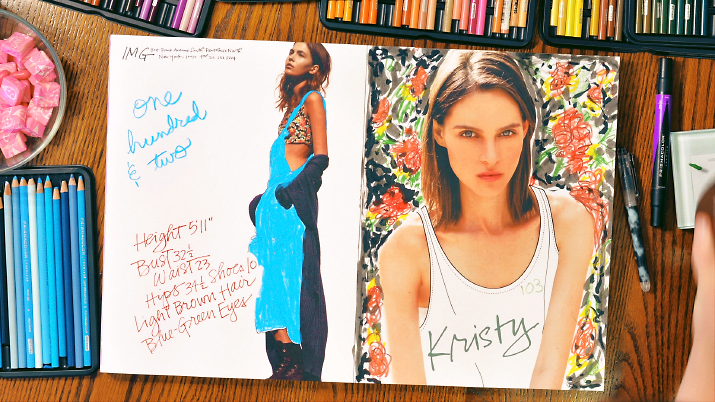 IMG
New York
one
hundred
& two
Height 5'11"
Bust 32½
Waist 23
Hips 34½ Shoes 10
Light Brown Hair
Blue-Green Eyes
103
Kristy
PRISMACOLOR